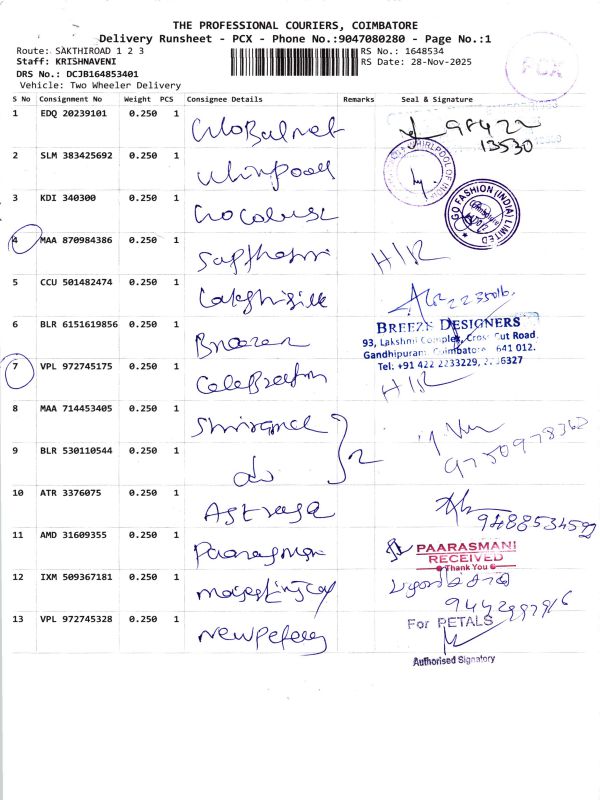 THE PROFESSIONAL COURIERS, COIMBATORE
Delivery Runsheet - PCX - Phone No.:9047080280 - Page No.:1
Route: SAKTHIROAD 1 2 3
RS No.: 1648534
Staff: KRISHNAVENI
RS Date: 28-Nov-2025
DRS No.: DCJB164853401
Vehicle: Two Wheeler Delivery
PCX
S No Consignment No Weight PCS Consignee Details Remarks Seal & Signature
1 EDQ 20239101 0.250 1 Globalnet 98422
13530
2 SLM 383425692 0.250 1 Whirlpool
WHIRLPOOL OF INDIA
3 KDI 340300 0.250 1
GO FASHION (INDIA) LIMITED
4 MAA 870984386 0.250 1 H/R
5 CCU 501482474 0.250 1
6 BLR 6151619856 0.250 1
BREEZE DESIGNERS
93, Lakshmi Complex, Cross Cut Road,
Gandhipuram, Coimbatore 641 012.
Tel: +91 422 2233229,
7 VPL 972745175 0.250 1 Celebration H/R
8 MAA 714453405 0.250 1 2
9750978362
9 BLR 530110544 0.250 1 do
10 ATR 3376075 0.250 1
11 AMD 31609355 0.250 1 Paarasmani
PAARASMANI
RECEIVED
Thank You
12 IXM 509367181 0.250 1
13 VPL 972745328 0.250 1
For PETALS
Authorised Signatory